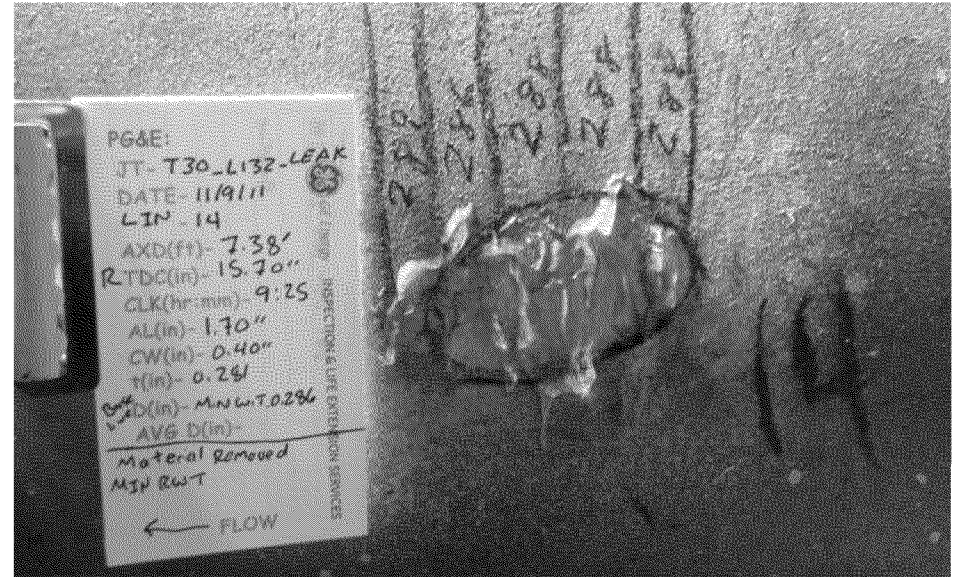 PG&E:
JT- T30_L132-LEAK
DATE- 11/9/11
LIN - 14
AXD(ft)- 7.38'
RTDC(in)- 15.70"
CLK(hr:mm)- 9:25
AL(in)- 1.70"
CW(in)- 0.40"
t(in)- 0.281
D(in)- MIN W.T. 0.286
AVG D(in)-
Material Removed
MIN RWT
← FLOW
INSPECTION & LIFE EXTENSION SERVICES
286
288
288
288